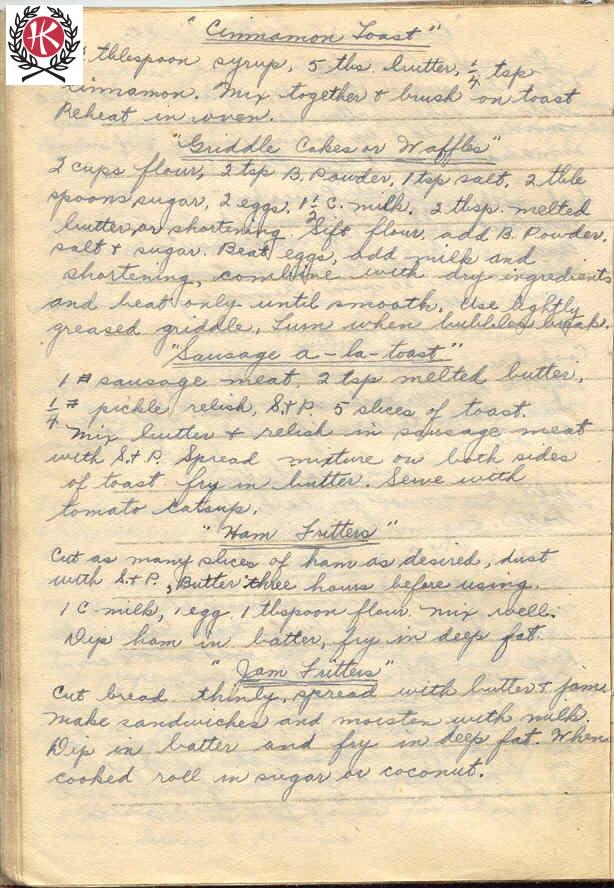 HK
"Cinnamon Toast"
tblespoon syrup, 5 tbs. butter, 1/4 tsp
cinnamon. Mix together & brush on toast
Reheat in oven.
"Griddle Cakes or Waffles"
2 cups flour, 2 tsp B. Powder, 1 tsp salt, 2 tble
spoons sugar, 2 eggs, 1 1/2 C. milk, 2 tbsp. melted
butter, or shortening. Sift flour, add B. Powder,
salt & sugar. Beat eggs, add milk and
shortening, combine with dry ingredients
and beat only until smooth. Use lightly
greased griddle. Turn when bubbles break.
"Sausage a-la-toast"
1 # sausage meat, 2 tsp melted butter,
1/4 # pickle relish, S.&P. 5 slices of toast.
Mix butter & relish in sausage meat
with S.&P. Spread mixture on both sides
of toast fry in butter. Serve with
tomato catsup.
"Ham Fritters"
Cut as many slices of ham as desired, dust
with S.&P., Butter three hours before using.
1 C milk, 1 egg, 1 tblspoon flour. Mix well.
Dip ham in batter, fry in deep fat.
"Jam Fritters"
Cut bread thinly, spread with butter & jam.
Make sandwiches and moisten with milk.
Dip in batter and fry in deep fat. When
cooked roll in sugar or coconut.